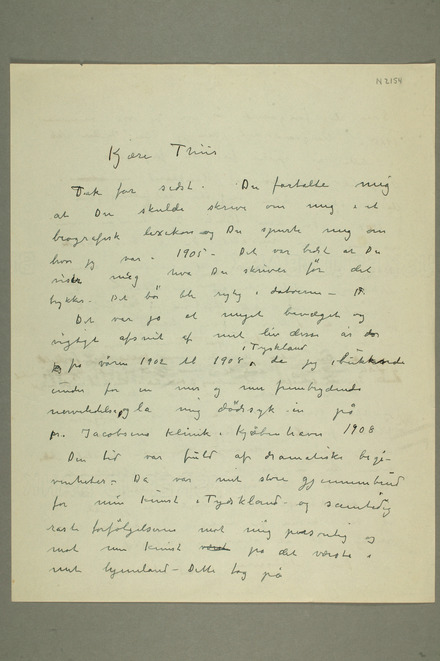 N 2154
Kjære Thiis
Tak for sidst. Du fortalte mig
at Du skulde skrive om mig i et
biografisk lexikon og Du spurte mig om
hvor jeg var i 1905 – Det var bedst at Du
viste mig hva Du skriver før det
trykkes. Det bør bli rigtig i datoerne –
Det var jo et meget bevæget og
vigtigt afsnit af mit liv disse år
fra våren 1902 til 1908, da jeg i Tyskland bukkede
under for en mer og mer frembrydende
nervelidelse og la mig dødssyk ind på
Dr. Jacobsens klinik i Kjøbenhavn 1908
Den tid var fuld af dramatiske begi-
venheter – Da var mit store gjennembrud
for min kunst i Tyskland – og samtidig
raste forfølgelserne mot mig personlig og
mot min kunst på det værste i
mit hjemland – Dette tog på